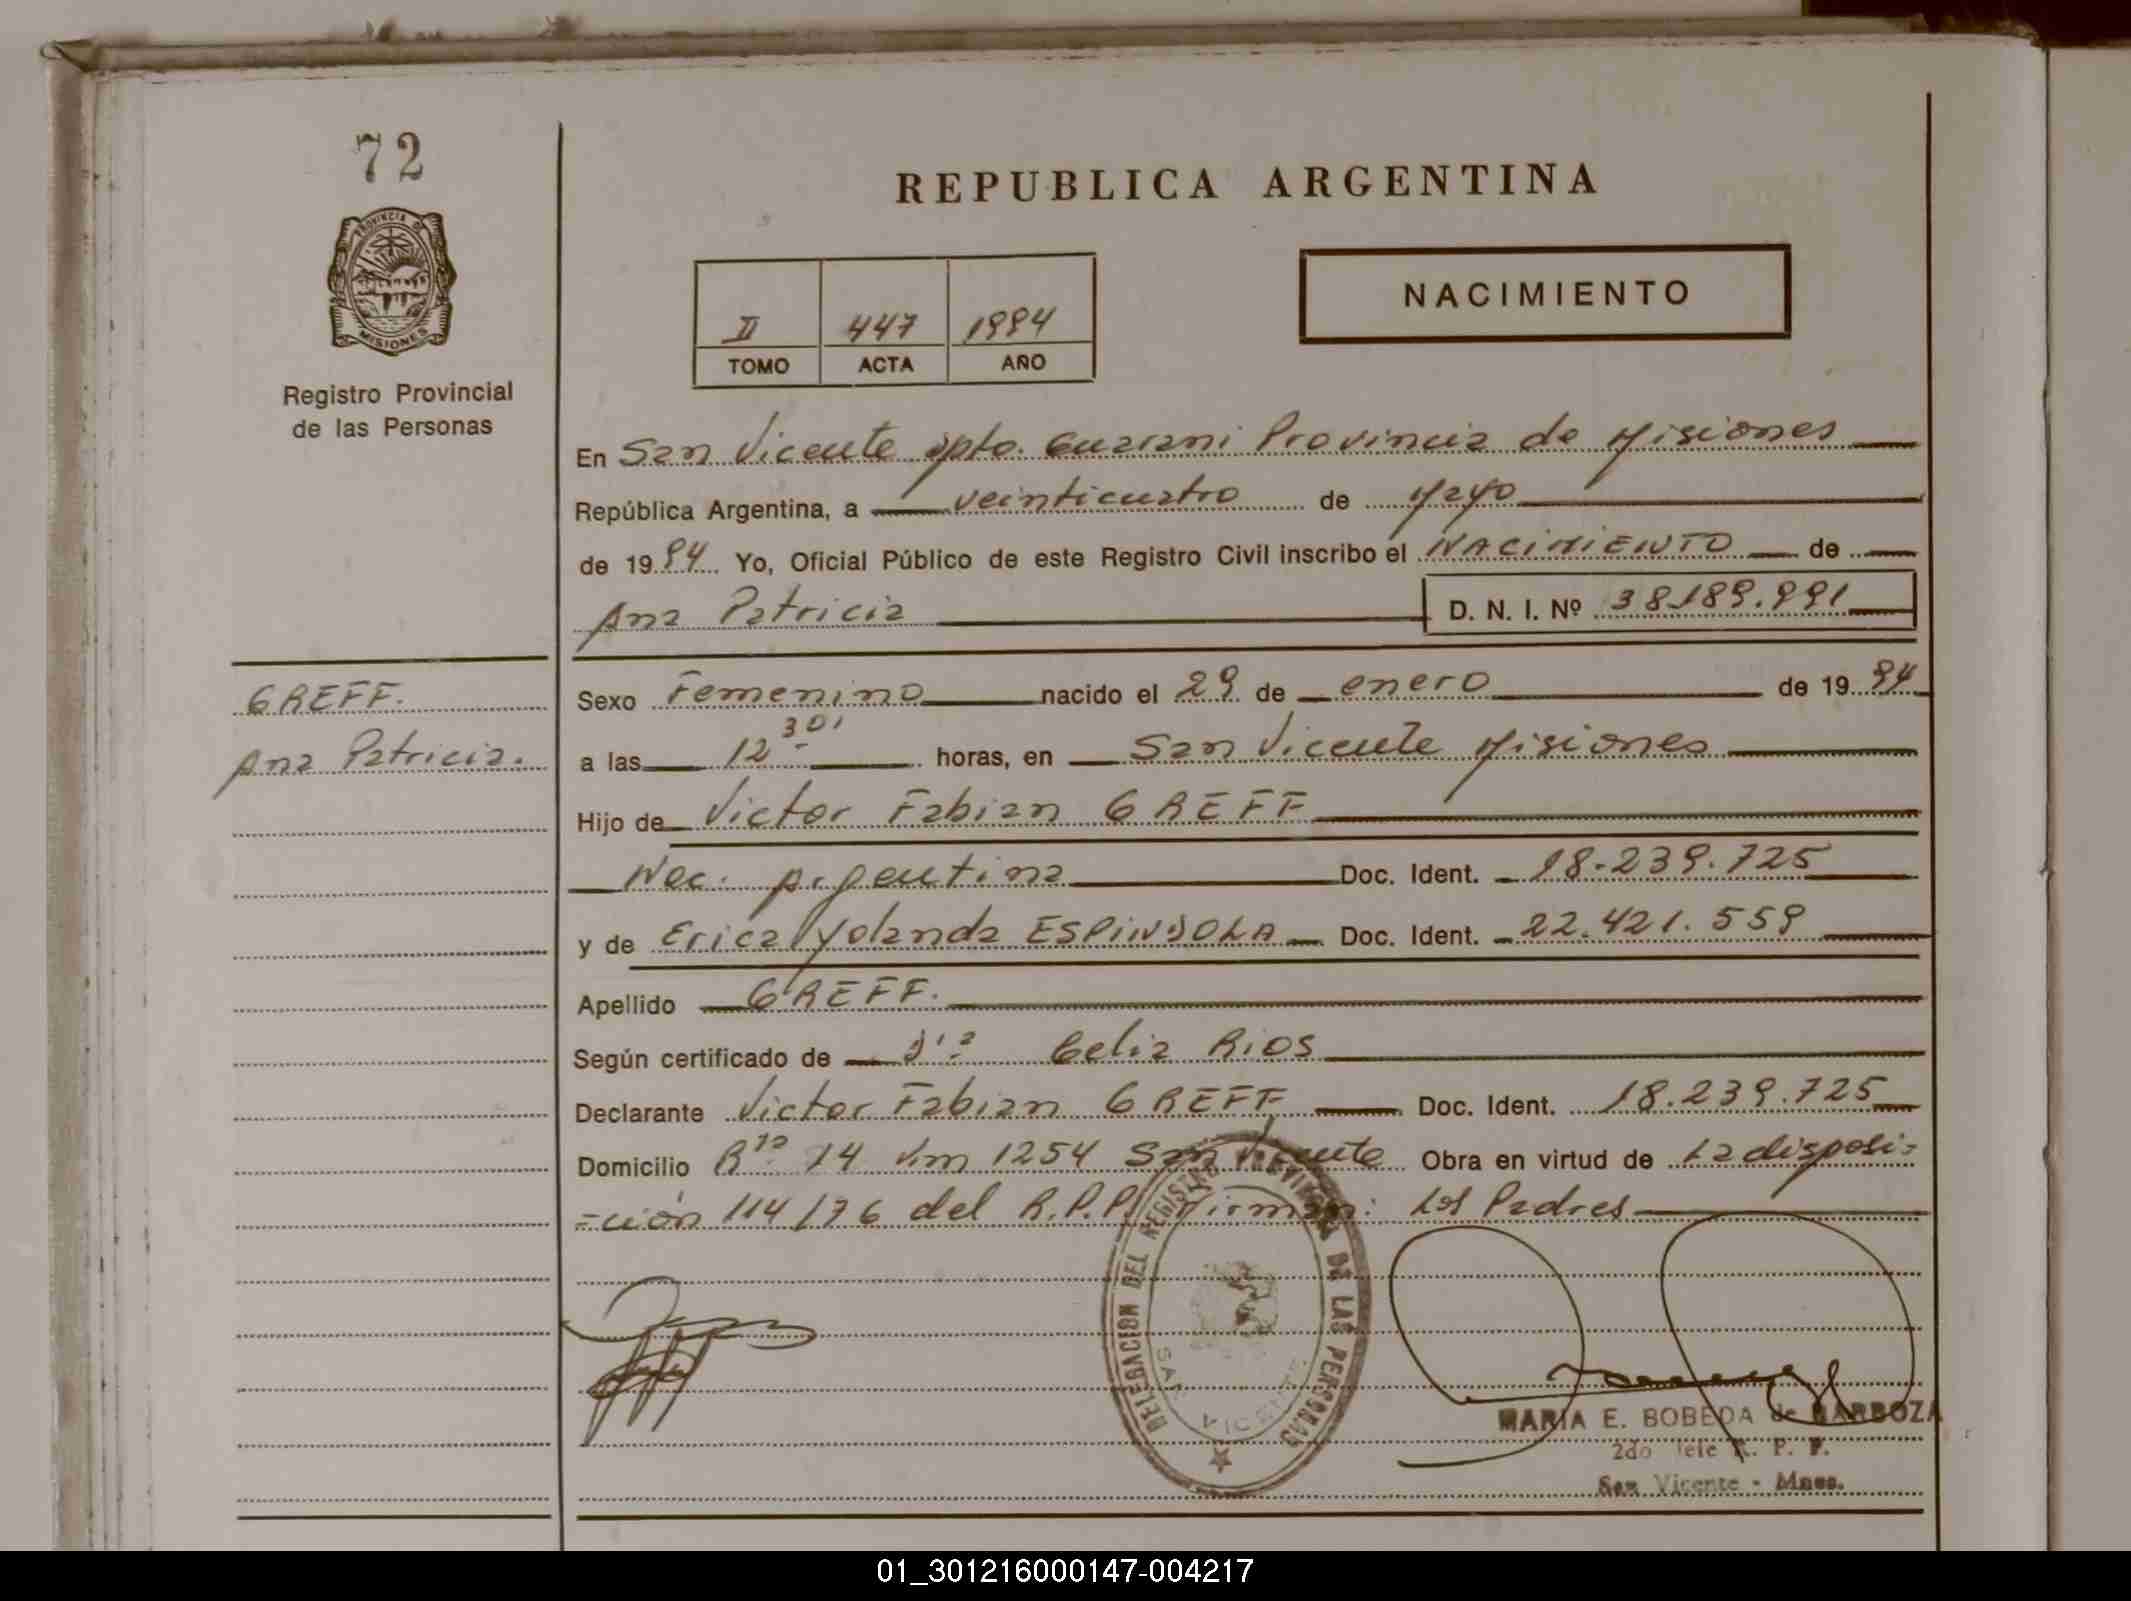 72
PROVINCIA DE
MISIONES
Registro Provincial
de las Personas
REPUBLICA ARGENTINA
NACIMIENTO
II 447 1994
TOMO ACTA AÑO
En San Vicente Dpto. Guarani Provincia de Misiones
República Argentina, a veinticuatro de Mayo
de 1994 Yo, Oficial Público de este Registro Civil inscribo el NACIMIENTO de
Ana Patricia D. N. I. Nº 38.189.991
GREFF.
Ana Patricia.
Sexo Femenino nacido el 29 de enero de 1994
a las 12 30' horas, en San Vicente Misiones
Hijo de Victor Fabian GREFF
Nac. Argentina Doc. Ident. 18.239.725
y de Erica Yolanda ESPINDOLA Doc. Ident. 22.421.559
Apellido GREFF.
Según certificado de Dra Celia Rios
Declarante Victor Fabian GREFF Doc. Ident. 18.239.725
Domicilio Rta 14 Km 1254 San Vicente Obra en virtud de la disposi-
-ción 114/76 del R.P.P. Firman: Los Padres
DELEGACION DEL REGISTRO PROVINCIAL DE LAS PERSONAS
SAN VICENTE
MARIA E. BOBEDA de BARBOZA
2do Jefe R. P. P.
San Vicente - Mnes.
01_301216000147-004217